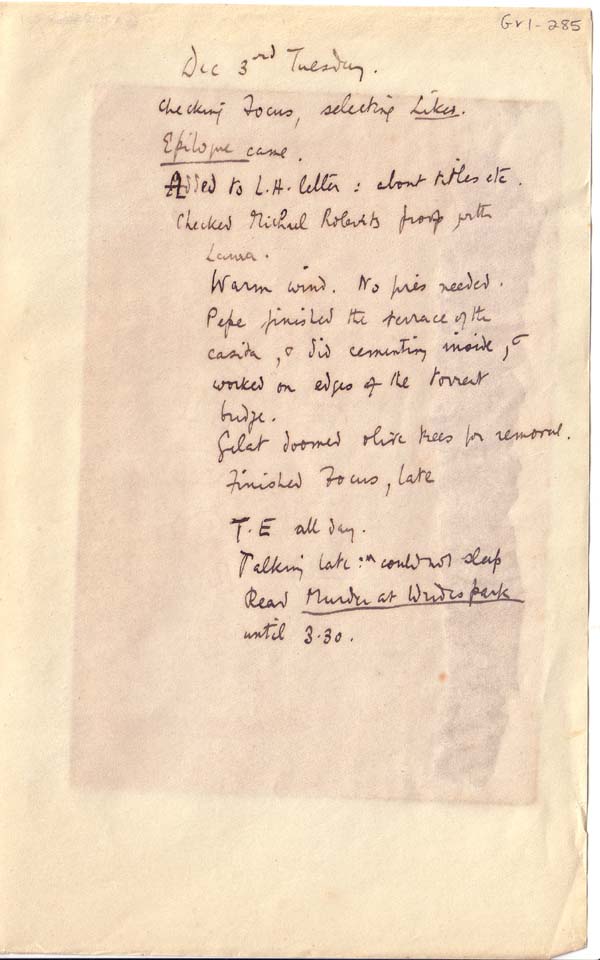 Gr1-285
Dec 3rd Tuesday.
Checking Focus, selecting Likes.
Epilogue came.
Added to L.H. letter: about titles etc.
Checked Michael Roberts proof with
Laura.
Warm wind. No fires needed.
Pepe finished the terrace of the
casita, & did cementing inside, &
worked on edges of the torrent
bridge.
Gelat doomed olive trees for removal.
Finished Focus, late
T.E all day.
Talking late: could not sleep
Read Murder at park
until 3.30.